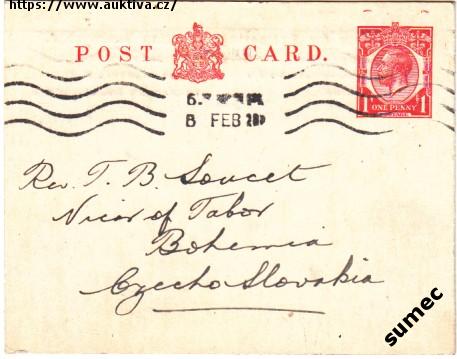 https://www.auktiva.cz/
POST CARD.
ONE PENNY
1 1
8 FEB
Rev. T. B.
Vicar of Tabor
Bohemia
Czecho Slovakia
sumec